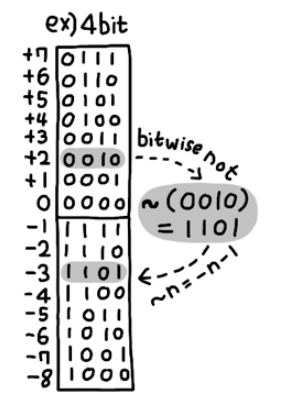 ex) 4bit
+7 0111
+6 0110
+5 0101
+4 0100
+3 0011
+2 0010
+1 0001
0 0000
-1 1111
-2 1110
-3 1101
-4 1100
-5 1011
-6 1010
-7 1001
-8 1000
bitwise not
~(0010)
= 1101
~n=-n-1